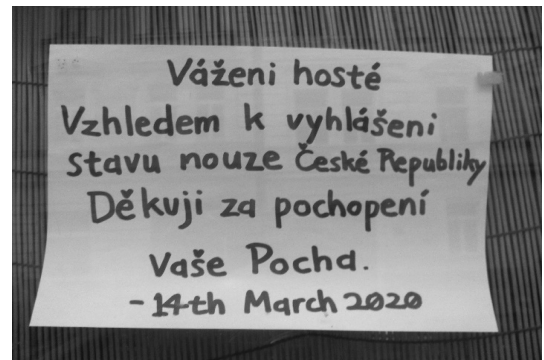 Váženi hosté
Vzhledem k vyhlášeni
stavu nouze České Republiky
Děkuji za pochopení
Vaše Pocha.
- 14th March 2020